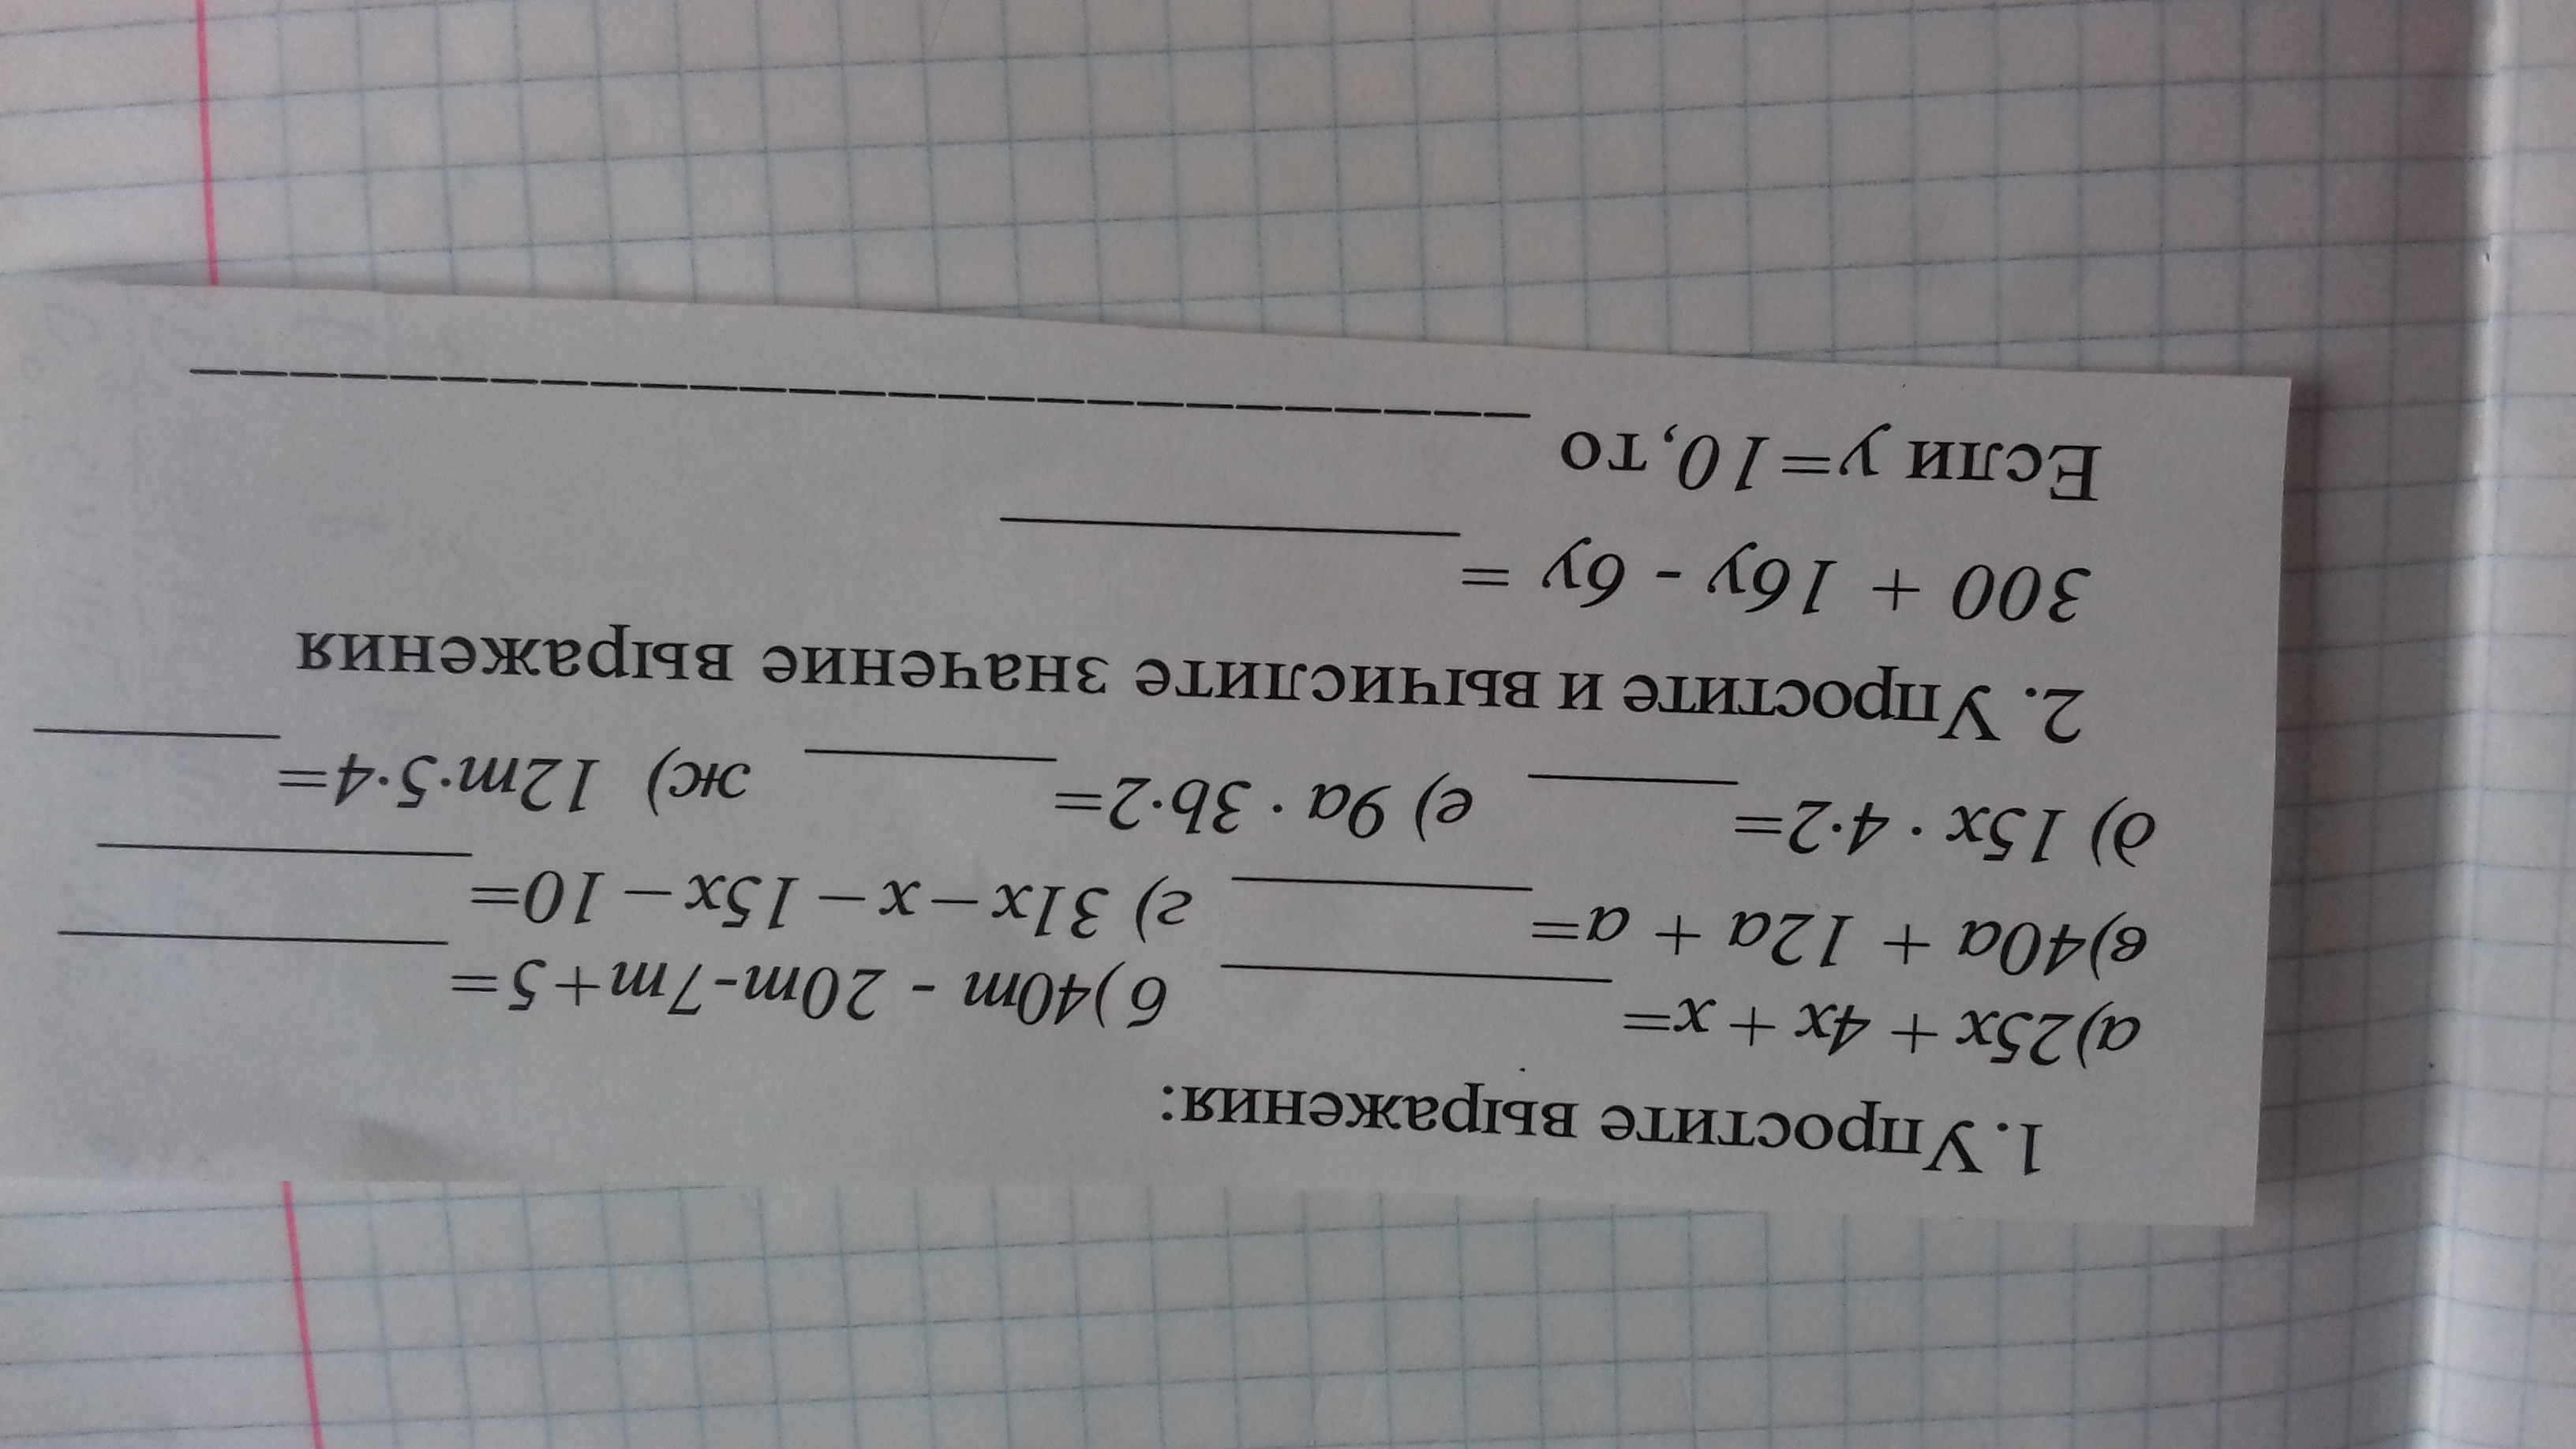 1. Упростите выражения:
а)25x + 4x + x=__________ б)40m - 20m-7m+5=__________
в)40a + 12a + a=________ г) 31x – x – 15x – 10=__________
д) 15x · 4·2=______ е) 9a · 3b·2=_______ ж) 12m·5·4=_______
2. Упростите и вычислите значение выражения
300 + 16y - 6y =____________
Если y=10,то ___________________________